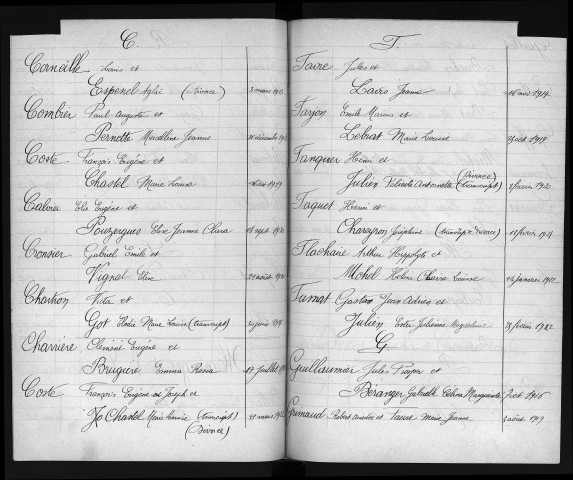 C.
Corneille Louis et
Espenel Aglaé (Divorce) 3 mars 19
Combier Paul Auguste et
Pernette Marcelline Jeanne décembre 19
Coste François Eugène et
Chastel Marie Louise 1919
Calvier Elie Eugène et
Pouzergues Elise Jeanne Clara 18 sept 19
Crosnier Gabriel Emile et
Vignal Elise 21 août 19
Chartron Victor et
Got Elodie Marie Louise (transcript) 30 juin 19
Charriere Clément Eugène et
Brugière Emma Rosia 17 juillet 19
Coste François Eugène Joseph et
Chastel Marie Louise (transcript) 31 mars 19
(Divorce)
T.
Favre Jules et
Lavis Jeanne 26 1914
Tarjon Emile Marius et
Lebrat Marie Louise 25 oct 1919
Tanquer Henri et
Julien Antoinette (Divorce) (transcript) 2 février 1920
Taquet Henri et
Charayron Joséphine (transcrip. Divorce) 12 février 1921
Flachaire Arthur Hippolyte et
Michel Hélène Claire Louise 24 janvier 19
Tumat Gaston Jean Adrien et
Julien Ester Julienne Magdeleine 28 février 1922
G
Guillaumar Jules et
Béranger Gabrielle Célina Marguerite 7 oct 1916
Grimaud Robert et Faure Marie Jeanne 2 août 1919